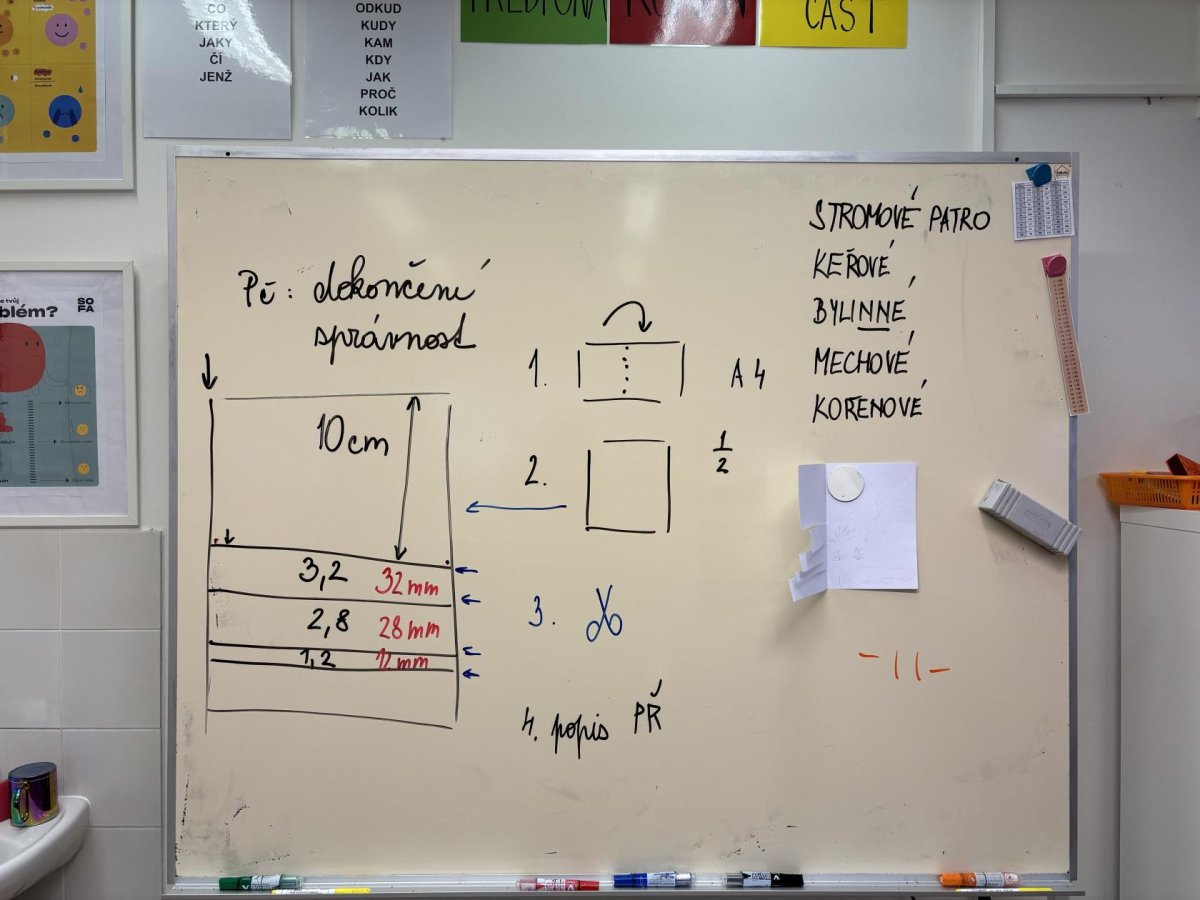 CO
KTERÝ
JAKÝ
ČÍ
JENŽ
ODKUD
KUDY
KAM
KDY
JAK
PROČ
KOLIK
ČÁST
blém?
SO
FA
Pč: dokončení
správnost
10cm
3,2 32mm
2,8 28mm
1,2 12mm
1. A4
2. 1/2
3.
4. popis PŘ
STROMOVÉ PATRO
KEŘOVÉ
BYLINNÉ
MECHOVÉ
KOŘENOVÉ